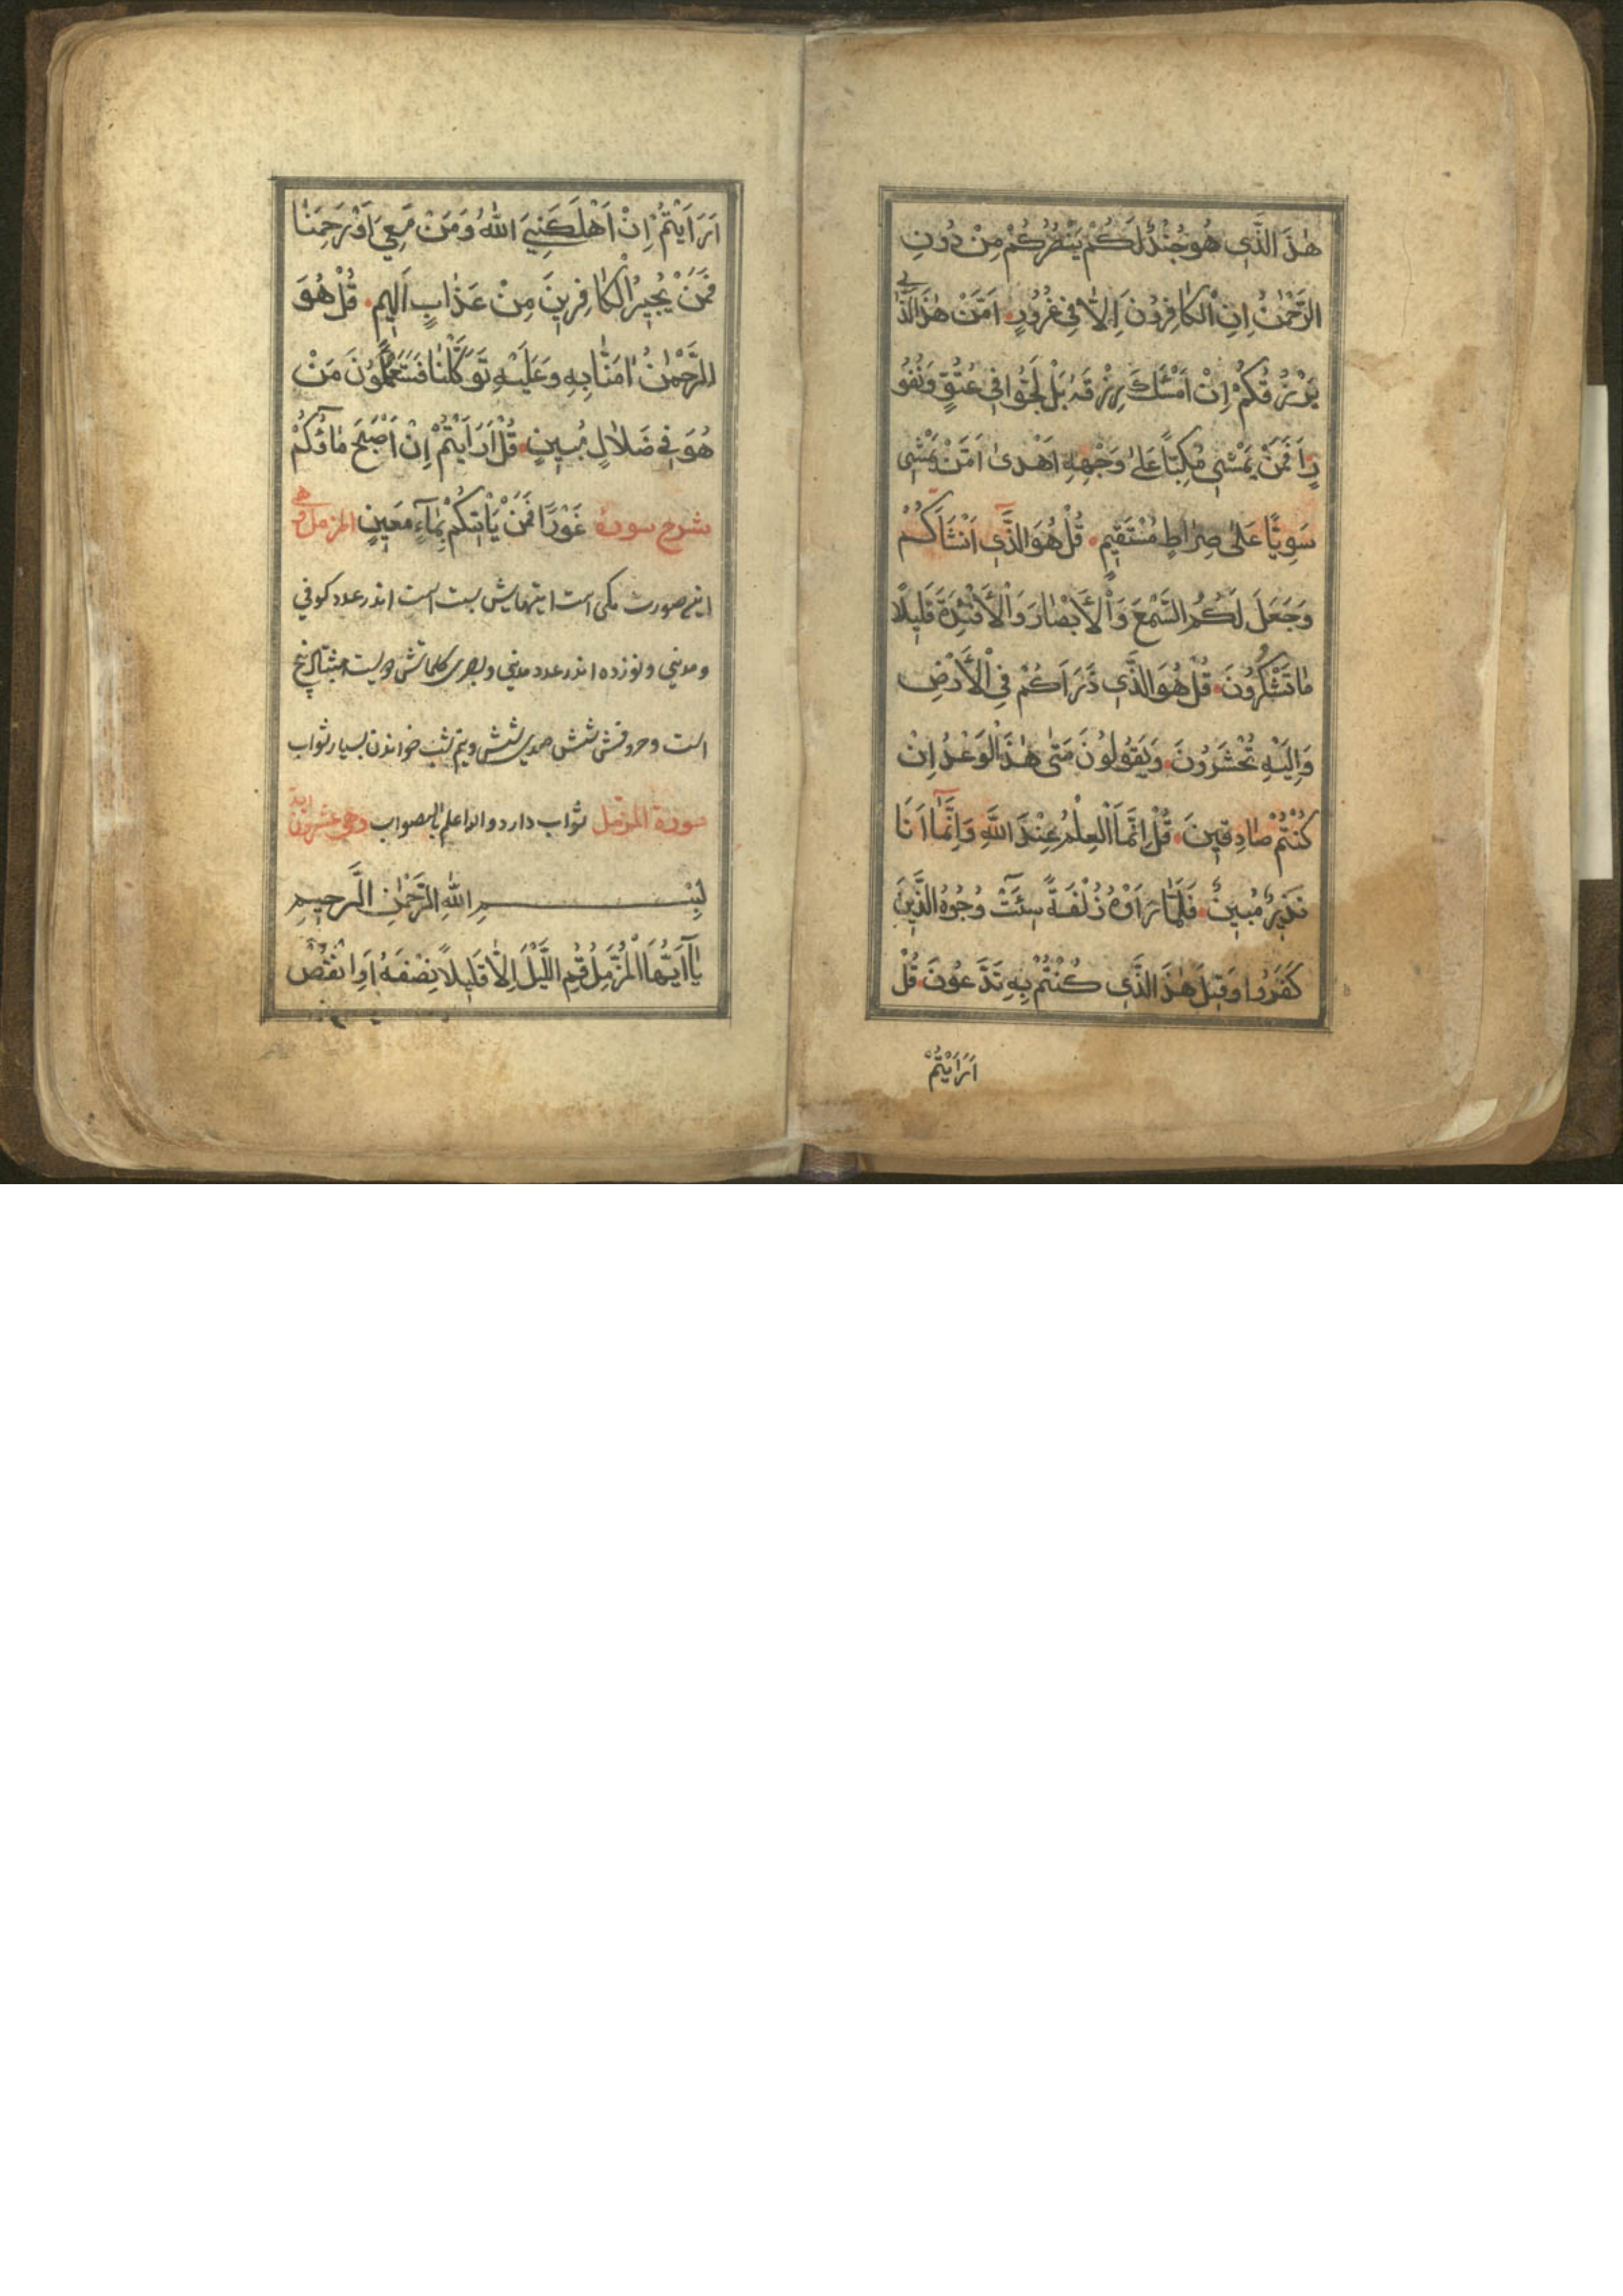 هٰذَا الَّذِي هُوَ جُنْدٌ لَكُمْ يَنْصُرُكُمْ مِنْ دُونِ
الرَّحْمٰنِ اِنِ الْكَافِرُونَ اِلَّا فِي غُرُورٍ اَمَّنْ هٰذَا الَّذِي
يَرْزُقُكُمْ اِنْ اَمْسَكَ رِزْقَهُ بَلْ لَجُّوا فِي عُتُوٍّ وَنُفُو
رٍ اَفَمَنْ يَمْشِي مُكِبًّا عَلٰى وَجْهِهِ اَهْدٰى اَمَّنْ يَمْشِي
سَوِيًّا عَلٰى صِرَاطٍ مُسْتَقِيمٍ قُلْ هُوَ الَّذِي اَنْشَاَكُمْ
وَجَعَلَ لَكُمُ السَّمْعَ وَالْاَبْصَارَ وَالْاَفْئِدَةَ قَلِيلًا
مَا تَشْكُرُونَ قُلْ هُوَ الَّذِي ذَرَاَكُمْ فِي الْاَرْضِ
وَاِلَيْهِ تُحْشَرُونَ وَيَقُولُونَ مَتٰى هٰذَا الْوَعْدُ اِنْ
كُنْتُمْ صَادِقِينَ قُلْ اِنَّمَا الْعِلْمُ عِنْدَ اللّٰهِ وَاِنَّمَا اَنَا
نَذِيرٌ مُبِينٌ فَلَمَّا رَاَوْهُ زُلْفَةً سِيئَتْ وُجُوهُ الَّذِينَ
كَفَرُوا وَقِيلَ هٰذَا الَّذِي كُنْتُمْ بِهِ تَدَّعُونَ قُلْ
اَرَاَيْتُمْ
اَرَاَيْتُمْ اِنْ اَهْلَكَنِيَ اللّٰهُ وَمَنْ مَعِيَ اَوْ رَحِمَنَا
فَمَنْ يُجِيرُ الْكَافِرِينَ مِنْ عَذَابٍ اَلِيمٍ قُلْ هُوَ
الرَّحْمٰنُ اٰمَنَّا بِهِ وَعَلَيْهِ تَوَكَّلْنَا فَسَتَعْلَمُونَ مَنْ
هُوَ فِي ضَلَالٍ مُبِينٍ قُلْ اَرَاَيْتُمْ اِنْ اَصْبَحَ مَاؤُكُمْ
شرح سورة غَوْرًا فَمَنْ يَاْتِيكُمْ بِمَاءٍ مَعِينٍ المزمل
این صورت مکی است ایتهایش بیست است اندر عدد کوفی
و مدنی و نوزده اندر عدد مدنی و بصری کلماتش دویست هشتاد پنج
است و حروفش شش صدی شش خواندن بسیار ثواب
سورة المزمل ثواب دارد والله اعلم بالصواب وهي عشرون آية
بِسْمِ اللّٰهِ الرَّحْمٰنِ الرَّحِيمِ
يَا اَيُّهَا الْمُزَّمِّلُ قُمِ اللَّيْلَ اِلَّا قَلِيلًا نِصْفَهُ اَوِ انْقُصْ